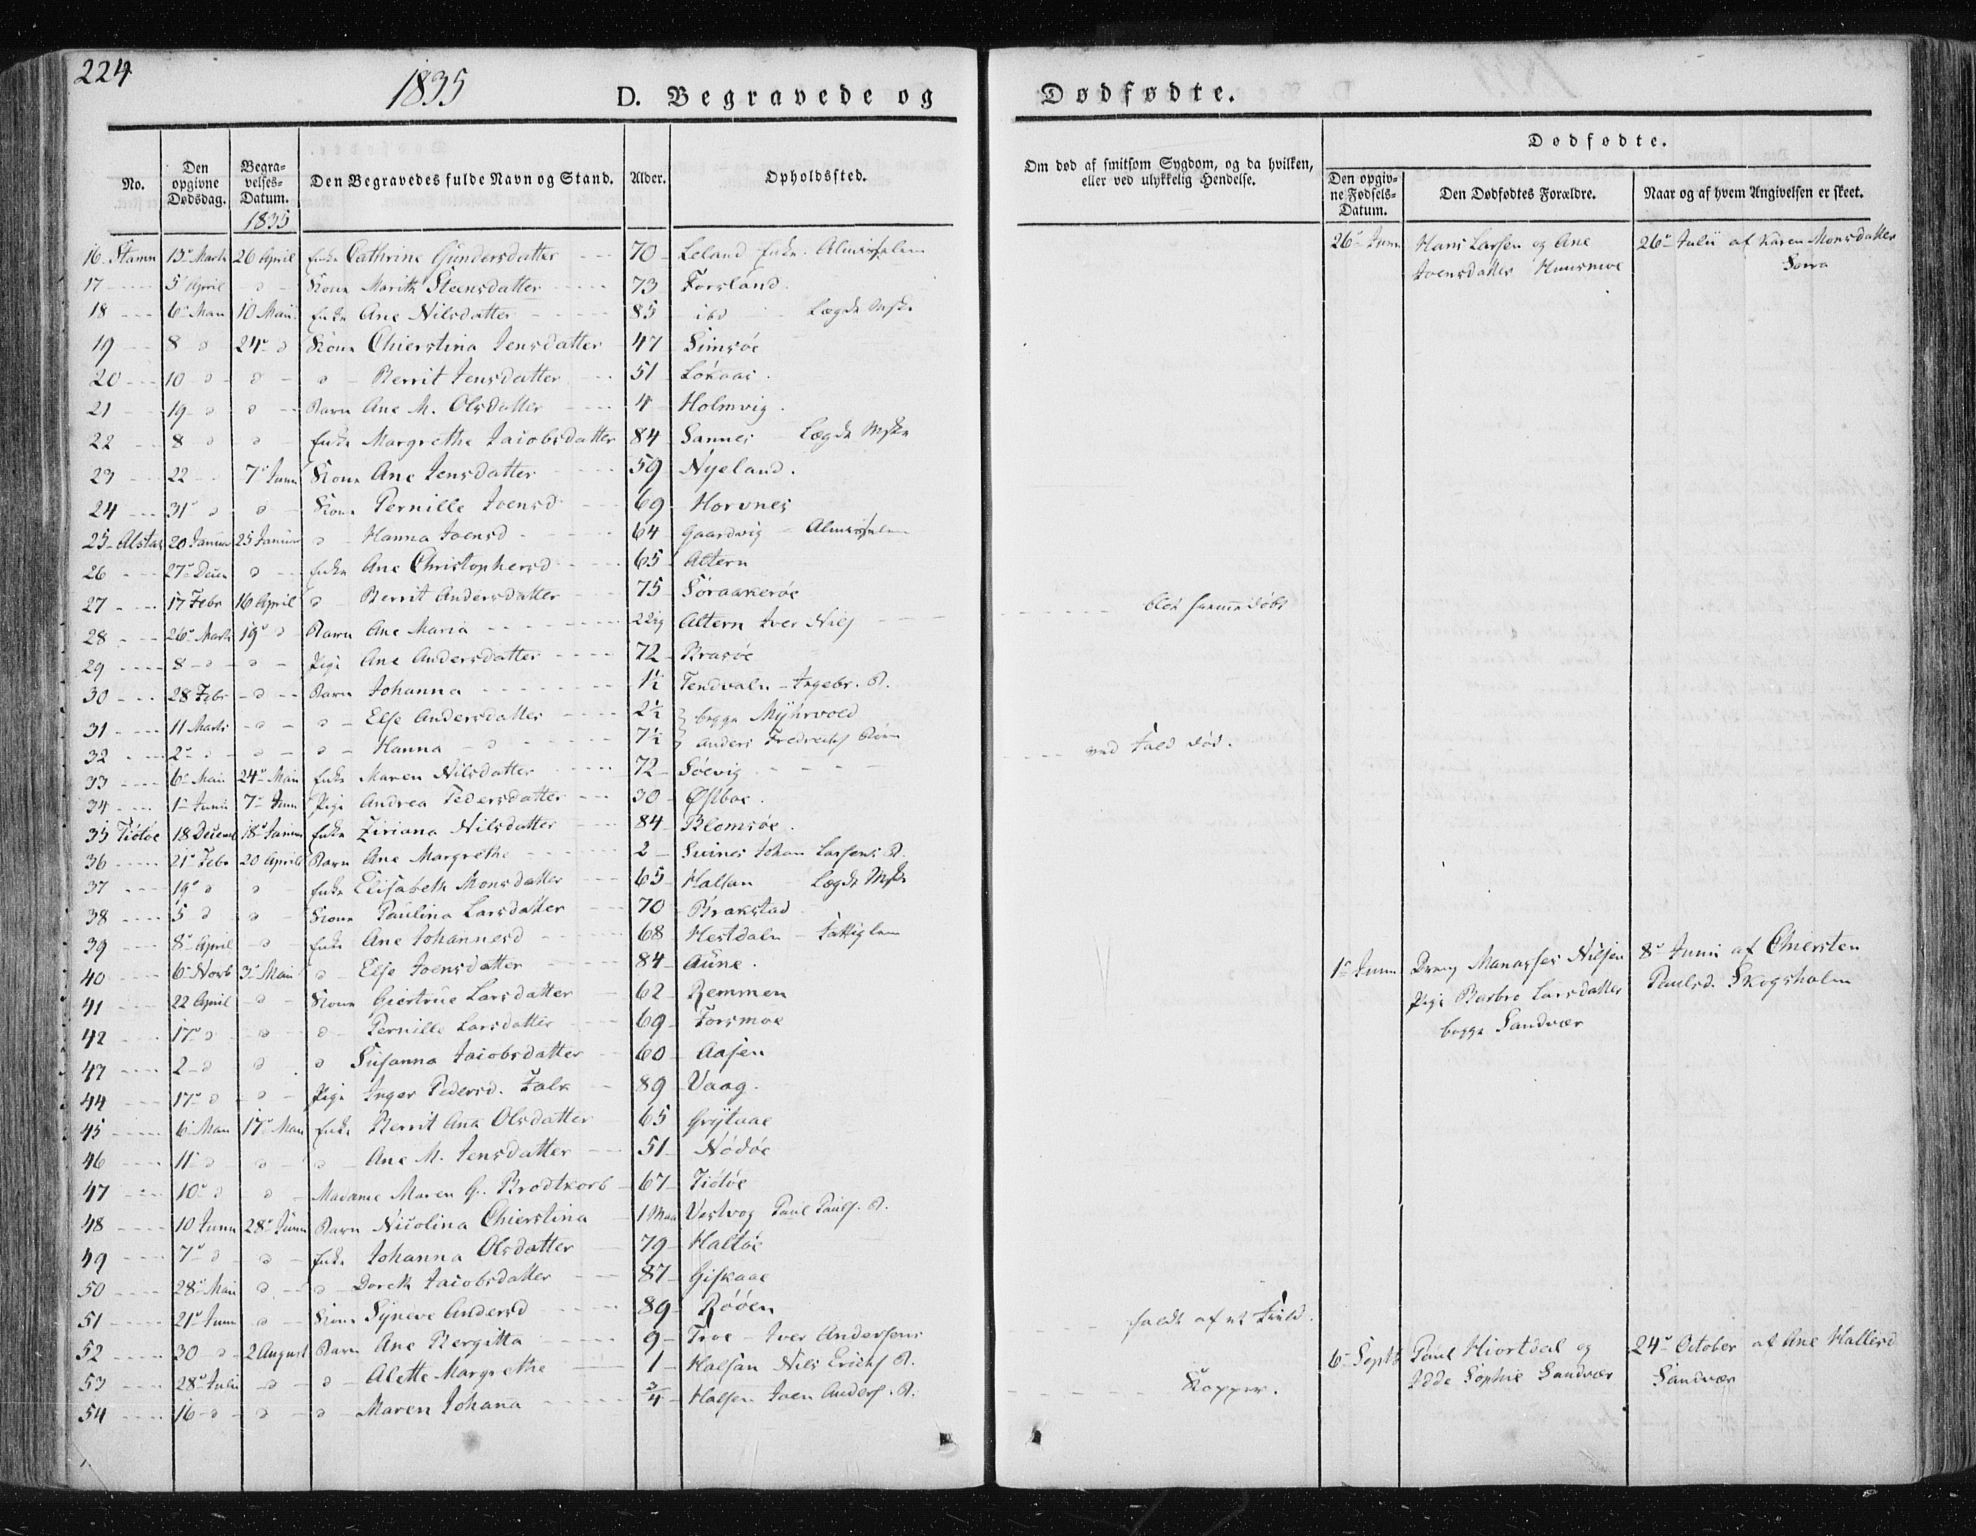 224
1835
D. Begravede og Dødfødte.
No. | Den opgivne Dødsdag. | Begravelses-Datum. 1835 | Den Begravedes fulde Navn og Stand. | Alder. | Opholdssted. | Om død af smitsom Sygdom, og da hvilken, eller ved ulykkelig Hendelse. | Dødfødte. | Den opgivne Fødsels-Datum. | Den Dødfødtes Forældre. | Naar og af hvem Angivelsen er skeet.
16 Stamn 13 Marti 26 April Enke Cathrine Gundersdatter 70 Leland Enke
17 5 April Kone Marith Steensdatter 73 Forsland
18 6 Maii 10 Maii Enke Ane Nilsdatter 85 ibd Lægds
19 8 24 Kone Chierstina Jensdatter 47 Simsøe
20 10 Berrit Jensdatter 51 Løkaas
21 19 Barn Ane M. Olsdatter 4 Holmvig
22 8 Enke Margrethe Jacobsdatter 84 Sannes Lægds
23 22 7 Junii Kone Ane Jensdatter 59 Nyeland
24 31 Kone Pernille Joensd 69 Horvnes
25 Alstah 20 Januar 25 Januar Hanna Joensd 64 Gaardvig
26 27 Decem Enke Ane Christophersd 65 Altern
27 17 Febr 16 April Berrit Andersdatter 75 Søraakerøe
28 26 Marti 19 Barn Ane Maria Altern Iver Nils blev hiemmedøbt
29 8 Pige Ane Andersdatter 72 Brasøe
30 28 Febr Barn Johanna 1½ Tendvaln Ingebr. B.
31 11 Marti Else Andersdatter 2½ begge Myhrvold
32 2 Hanna 7½ Anders Fredrechs Børn ved Fald død.
33 6 Maii 24 Maii Enke Maren Nilsdatter 72 Søevig
34 1 Junii 7 Junii Pige Andrea Pedersdatter 30 Østboe
35 Tiøtøe 18 Decemb 18 Januar Enke Ziriana Nilsdatter 84 Blomsøe
36 21 Febr 20 April Barn Ane Margrethe 2 Svines Johan Larsens B.
37 19 Enke Elisabeth Monsdatter 65 Halsan Lægds
38 5 Kone Paulina Larsdatter 70 Brækstad
39 8 April Enke Ane Johannesd 68 Hestdaln Fattiglem
40 6 Novb 3 Maii Else Joensdatter 84 Aune
41 22 April Kone Giertrue Larsdatter 62 Remmen
42 17 Pernille Larsdatter 69 Forsmoe
47 2 Susanna Jacobsdatter 60 Aasen
44 17 Pige Inger Pedersd. Falk 89 Vaag
45 6 Maii 17 Maii Enke Berrit Ana Olsdatter 65 Grytaae
46 11 Ane M. Jensdatter 51 Nødøe
47 10 Madame Maren G. Brodtkorb 67 Tiøtøe
48 10 Junii 28 Junii Barn Nicolina Chierstina 1 Maa Vestvog Paul Pauls. B.
49 7 Enke Johanna Olsdatter 79 Haltøe
50 28 Maii Doreth Jacobsdatter 87 Giskaae
51 21 Junii Kone Synneve Andersd 89 Røøen
52 30 2 August Barn Ane Bergitta 9 Troe Iver Andersens faldt af et Field.
53 28 Julii Alette Margrethe 1 Halsan Nils Erichs B.
54 16 Maren Johana ¾ Halsen Joen Anders. B. Kopper.
26 Junii Hans Larsen og Ane Joensdatter Huusmoe 26 Julii af Karen Monsdatter
1 Junii Dreng Manasses Nilsen Pige Barbro Larsdatter begge Sandvær 8 Junii af Chiersten Paulsd. Skogsholm
6 Septb Paul Hiortdal og Idde Sophie Sandvær 24 October af Ane Hallersd Sandvær